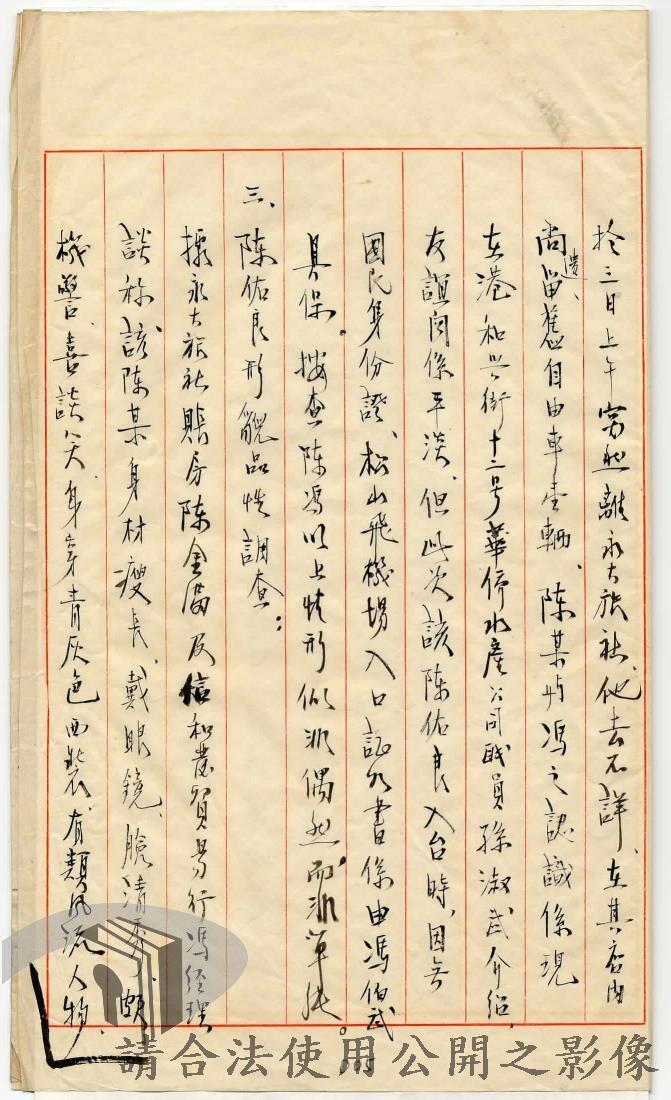 於三日上午突然離永大旅社、他去不詳、在其店內
尚遺留舊自由車壹輛、陳某与馮之認識係現
在港和興街十二号華僑水產公司職員孫淑武介紹、
友誼関係平淡、但此次該陳佑良入台時、因無
國民身份證、松山飛機場入口証明書係由馮伯武
具保。按查陳馮以上情形似非偶然而非單純。
三、陳佑良形貌品性調查：
據永大旅社賬房陳金滿及信和發貿易行馮經理
談称、該陳某身材瘦長、戴眼鏡、臉清秀、頗
機警、喜談笑、身穿青灰色西裝、有類風流人物、
005
請合法使用公開之影像